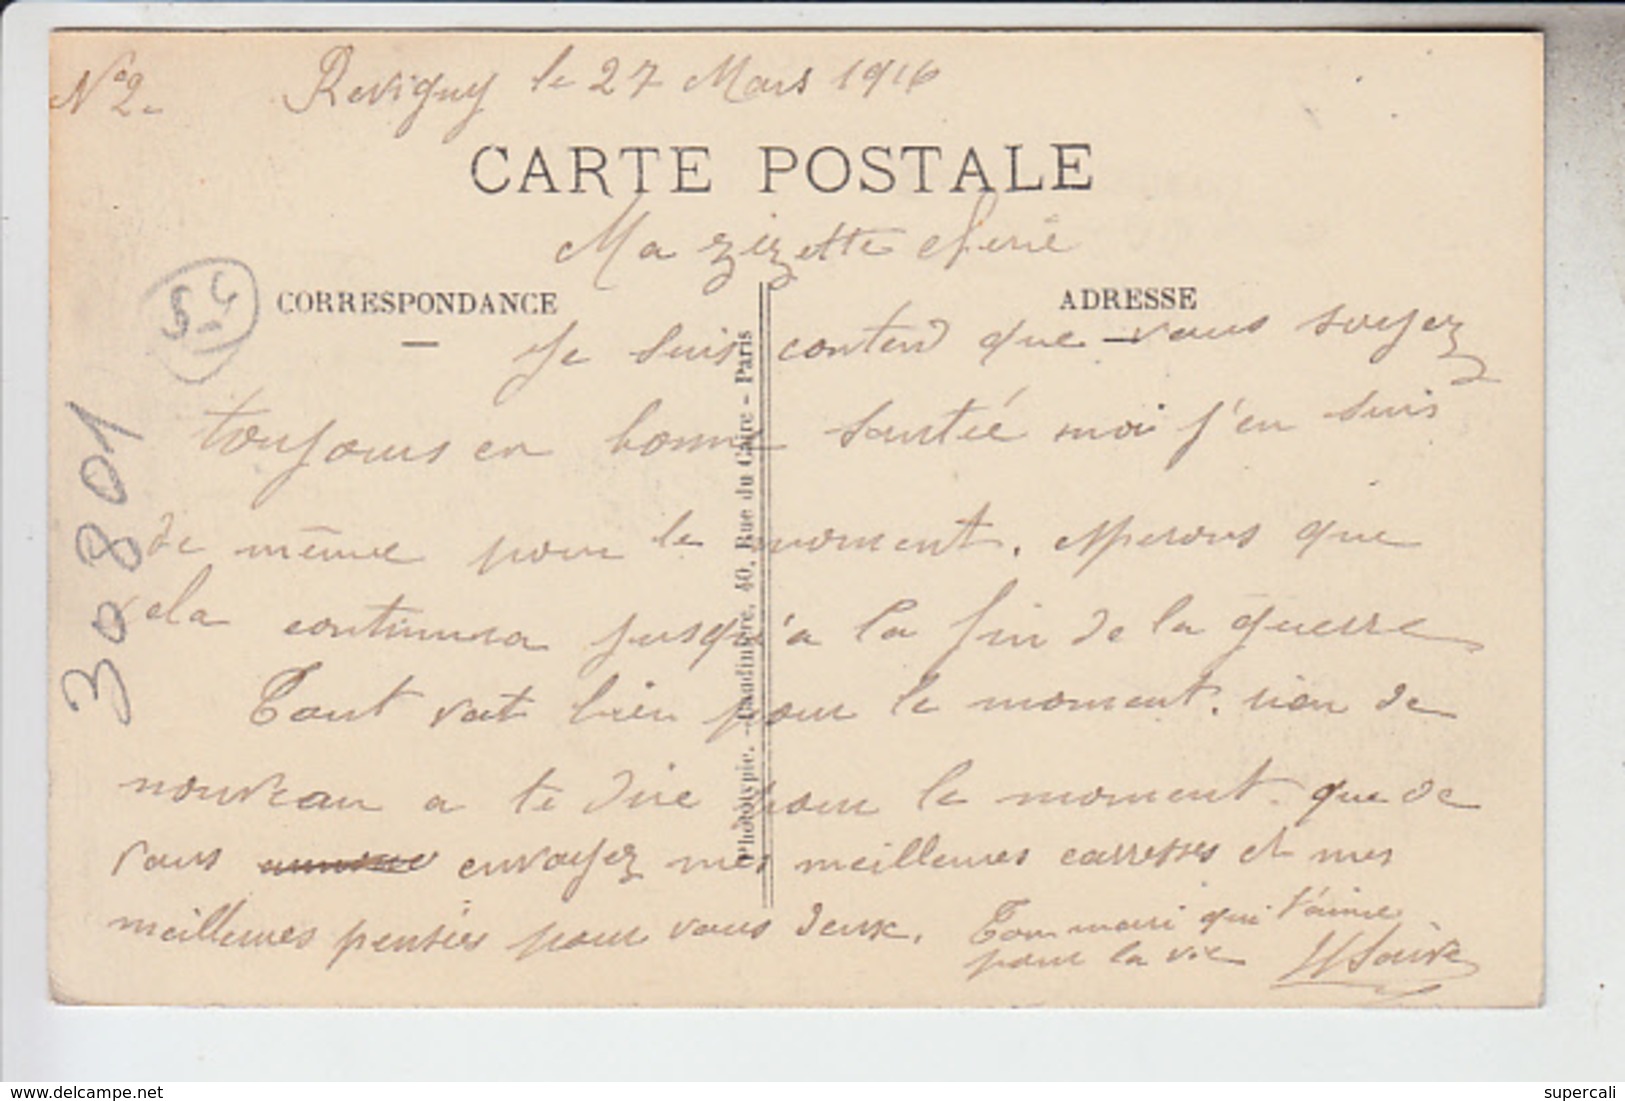 N° 2. Revigny le 27 Mars 1916
CARTE POSTALE
Ma zizette cherie
CORRESPONDANCE
ADRESSE
55
Je suis contend que vous soyez
toujours en bonne santée moi j'en suis
de même pour le moment. esperons que
cela continuera jusqu'a la fin de la guerre
Tout vat bien pour le moment. rien de
nouveau a te dire pour le moment. que de
vous envoyez mes meilleures carresses et mes
meilleures pensées pour vous deux. Ton mari qui t'aime
pour la vie
30801
Phototypie. - Baudinière, 40, Rue du Caire - Paris
delcampe.net
supercali